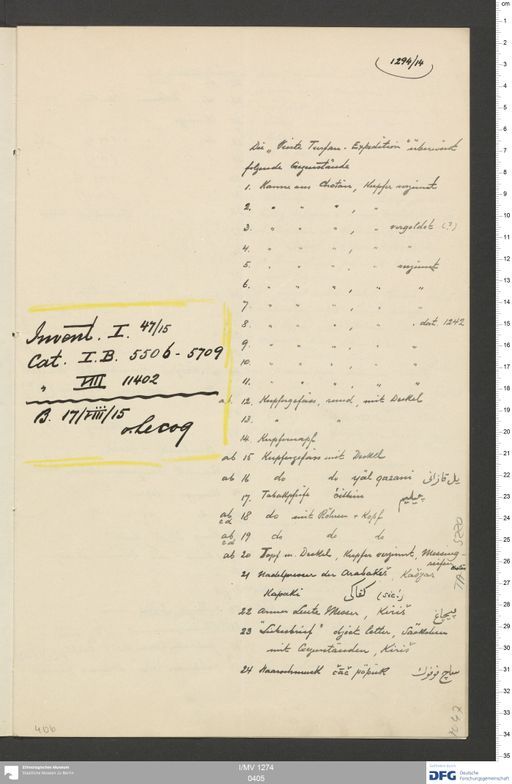 1294/14
Die "Vierte Turfan-Expedition" überweist
folgende Gegenstände
1. Kanne aus Chotän, Kupfer verzinnt
2. " " " , "
3. " " " , " vergoldet (?)
4. " " " , " "
5. " " " , " verzinnt
6. " " " , " "
7. " " " , " "
8. " " " , " " dat. 1242
9. " " " , " "
10. " " " , " "
11. " " " , " "
ab 12. Kupfergefäss, rund, mit Deckel
13. " "
14. Kupfernapf
ab 15 Kupfergefäss mit Deckel
ab 16 do do yal qazani
17. Tabakpfeife čillim چیلیم
ab cd 18 do mit Röhren + Kopf
ab cd 19 do do do
ab 20 Topf m. Deckel, Kupfer verzinnt, Messing-
reifen
21 Nadelmesser der Arabakěš, Kašgar
Kapaki (sic!)
22 Armer Leute Messer, Kiriš
23 "Liebesbrief" object letter, Säckchen
mit Gegenständen, Kiriš
24 Haarschmuck čäč pöpük
Invent. I. 47/15
Cat. I.B. 5506-5709
" VIII 11402
B. 17/VIII/15
v. Lecoq
406
I/MV 1274
0405
Ethnologisches Museum
Staatliche Museen zu Berlin
DFG Deutsche
Forschungsgemeinschaft